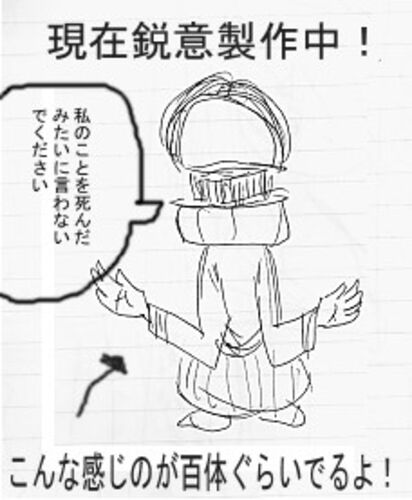 現在鋭意製作中！
私のことを死んだ
みたいに言わない
でください
こんな感じのが百体ぐらいでるよ！